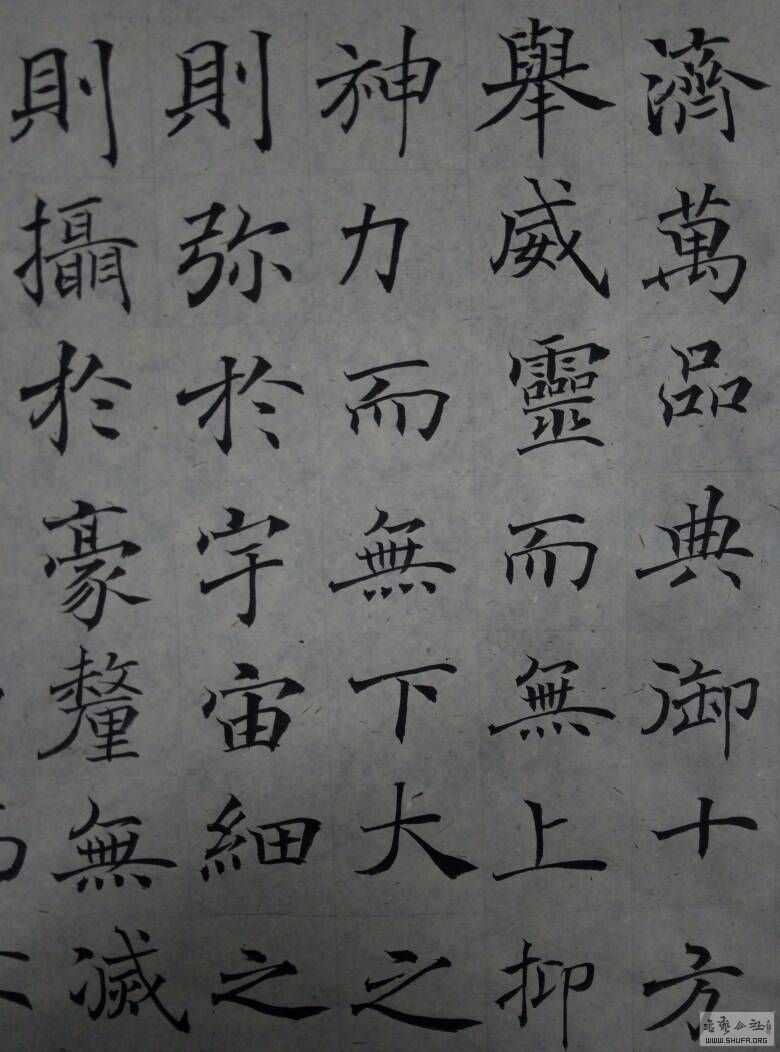 濟萬品典御十方
舉威靈而無上抑
神力而無下大之
則弥於宇宙細之
則攝於豪釐無滅
WWW.SHUFA.ORG